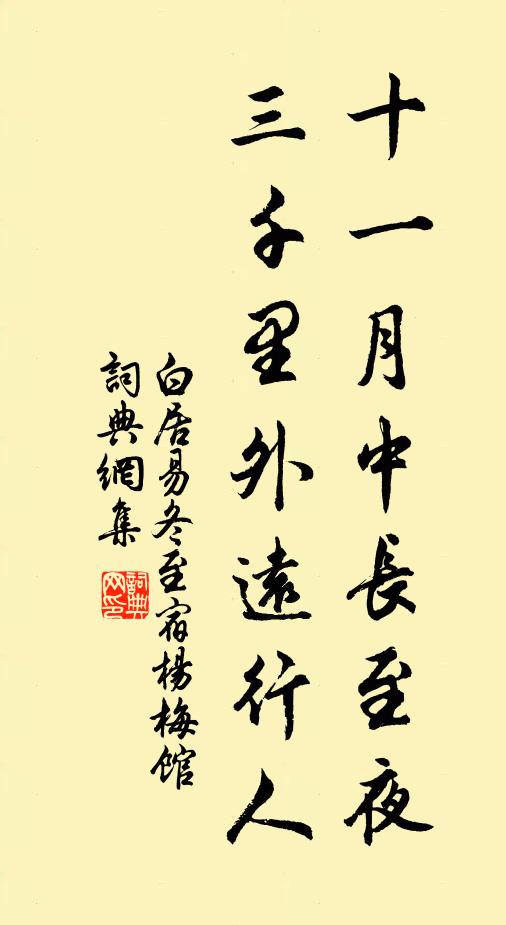 十一月中長至夜
三千里外遠行人
白居易冬至宿楊梅館
詞典網集
詞典網印